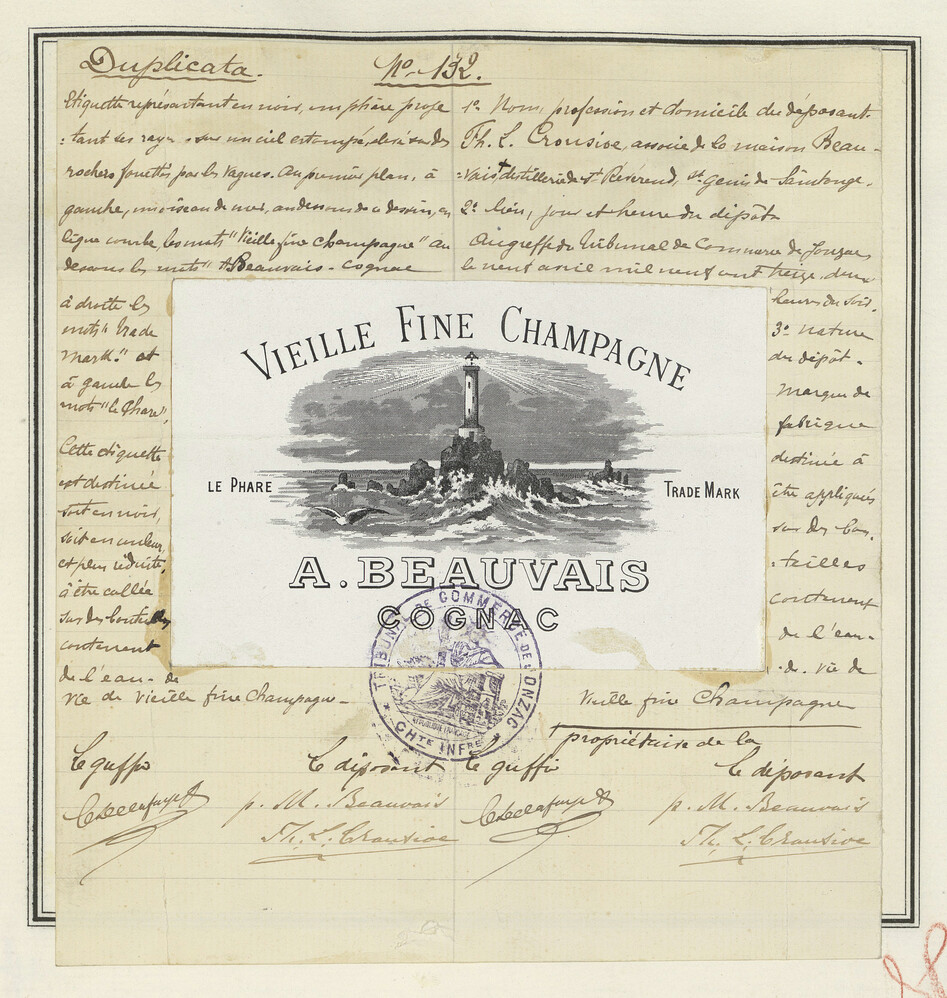 Duplicata.
No 132.
Etiquette représentant en noir, un phare proje
=tant ses rayons sur un ciel estompé, élevé sur des
rochers fouettés par les vagues. Au premier plan, à
gauche, un oiseau de mer, au dessous de ce dessin, en
ligne courbe, les mots "Vieille fine champagne" au
dessous les mots "A Beauvais - Cognac
à droite les
mots "trade
mark." et
à gauche les
mots "le Phare",
Cette étiquette
est destinée
soit en noir,
soit en couleur,
et plus réduite,
à être collée
sur des bouteilles
contenant
de l'eau-de
vie de vieille fine Champagne-
1o Nom, profession et domicile du déposant.
Th. L. Crousive, associé de la maison Beau-
=vais + distillerie de St Révérend, St Genis de Saintonge.
2o lieu, jour et heure du dépôt
Au greffe du Tribunal de Commerce de Jonzac
le neuf avril mil neuf cent treize, deux
heures du soir.
3o nature
du dépôt.
Marque de
fabrique
destinée à
être appliquée
sur des bou.
=teilles
contenant
de l'eau-
-de vie de
vieille fine Champagne
propriétaire de la
VIEILLE FINE CHAMPAGNE
LE PHARE
TRADE MARK
A. BEAUVAIS
COGNAC
TRIBUNAL DE COMMERCE DE JONZAC
CHTE INFRE
Le greffier
Le déposant
Le greffier
Le déposant
p. M. Beauvais
p. M. Beauvais
Th. L. Crousive
Th. L. Crousive